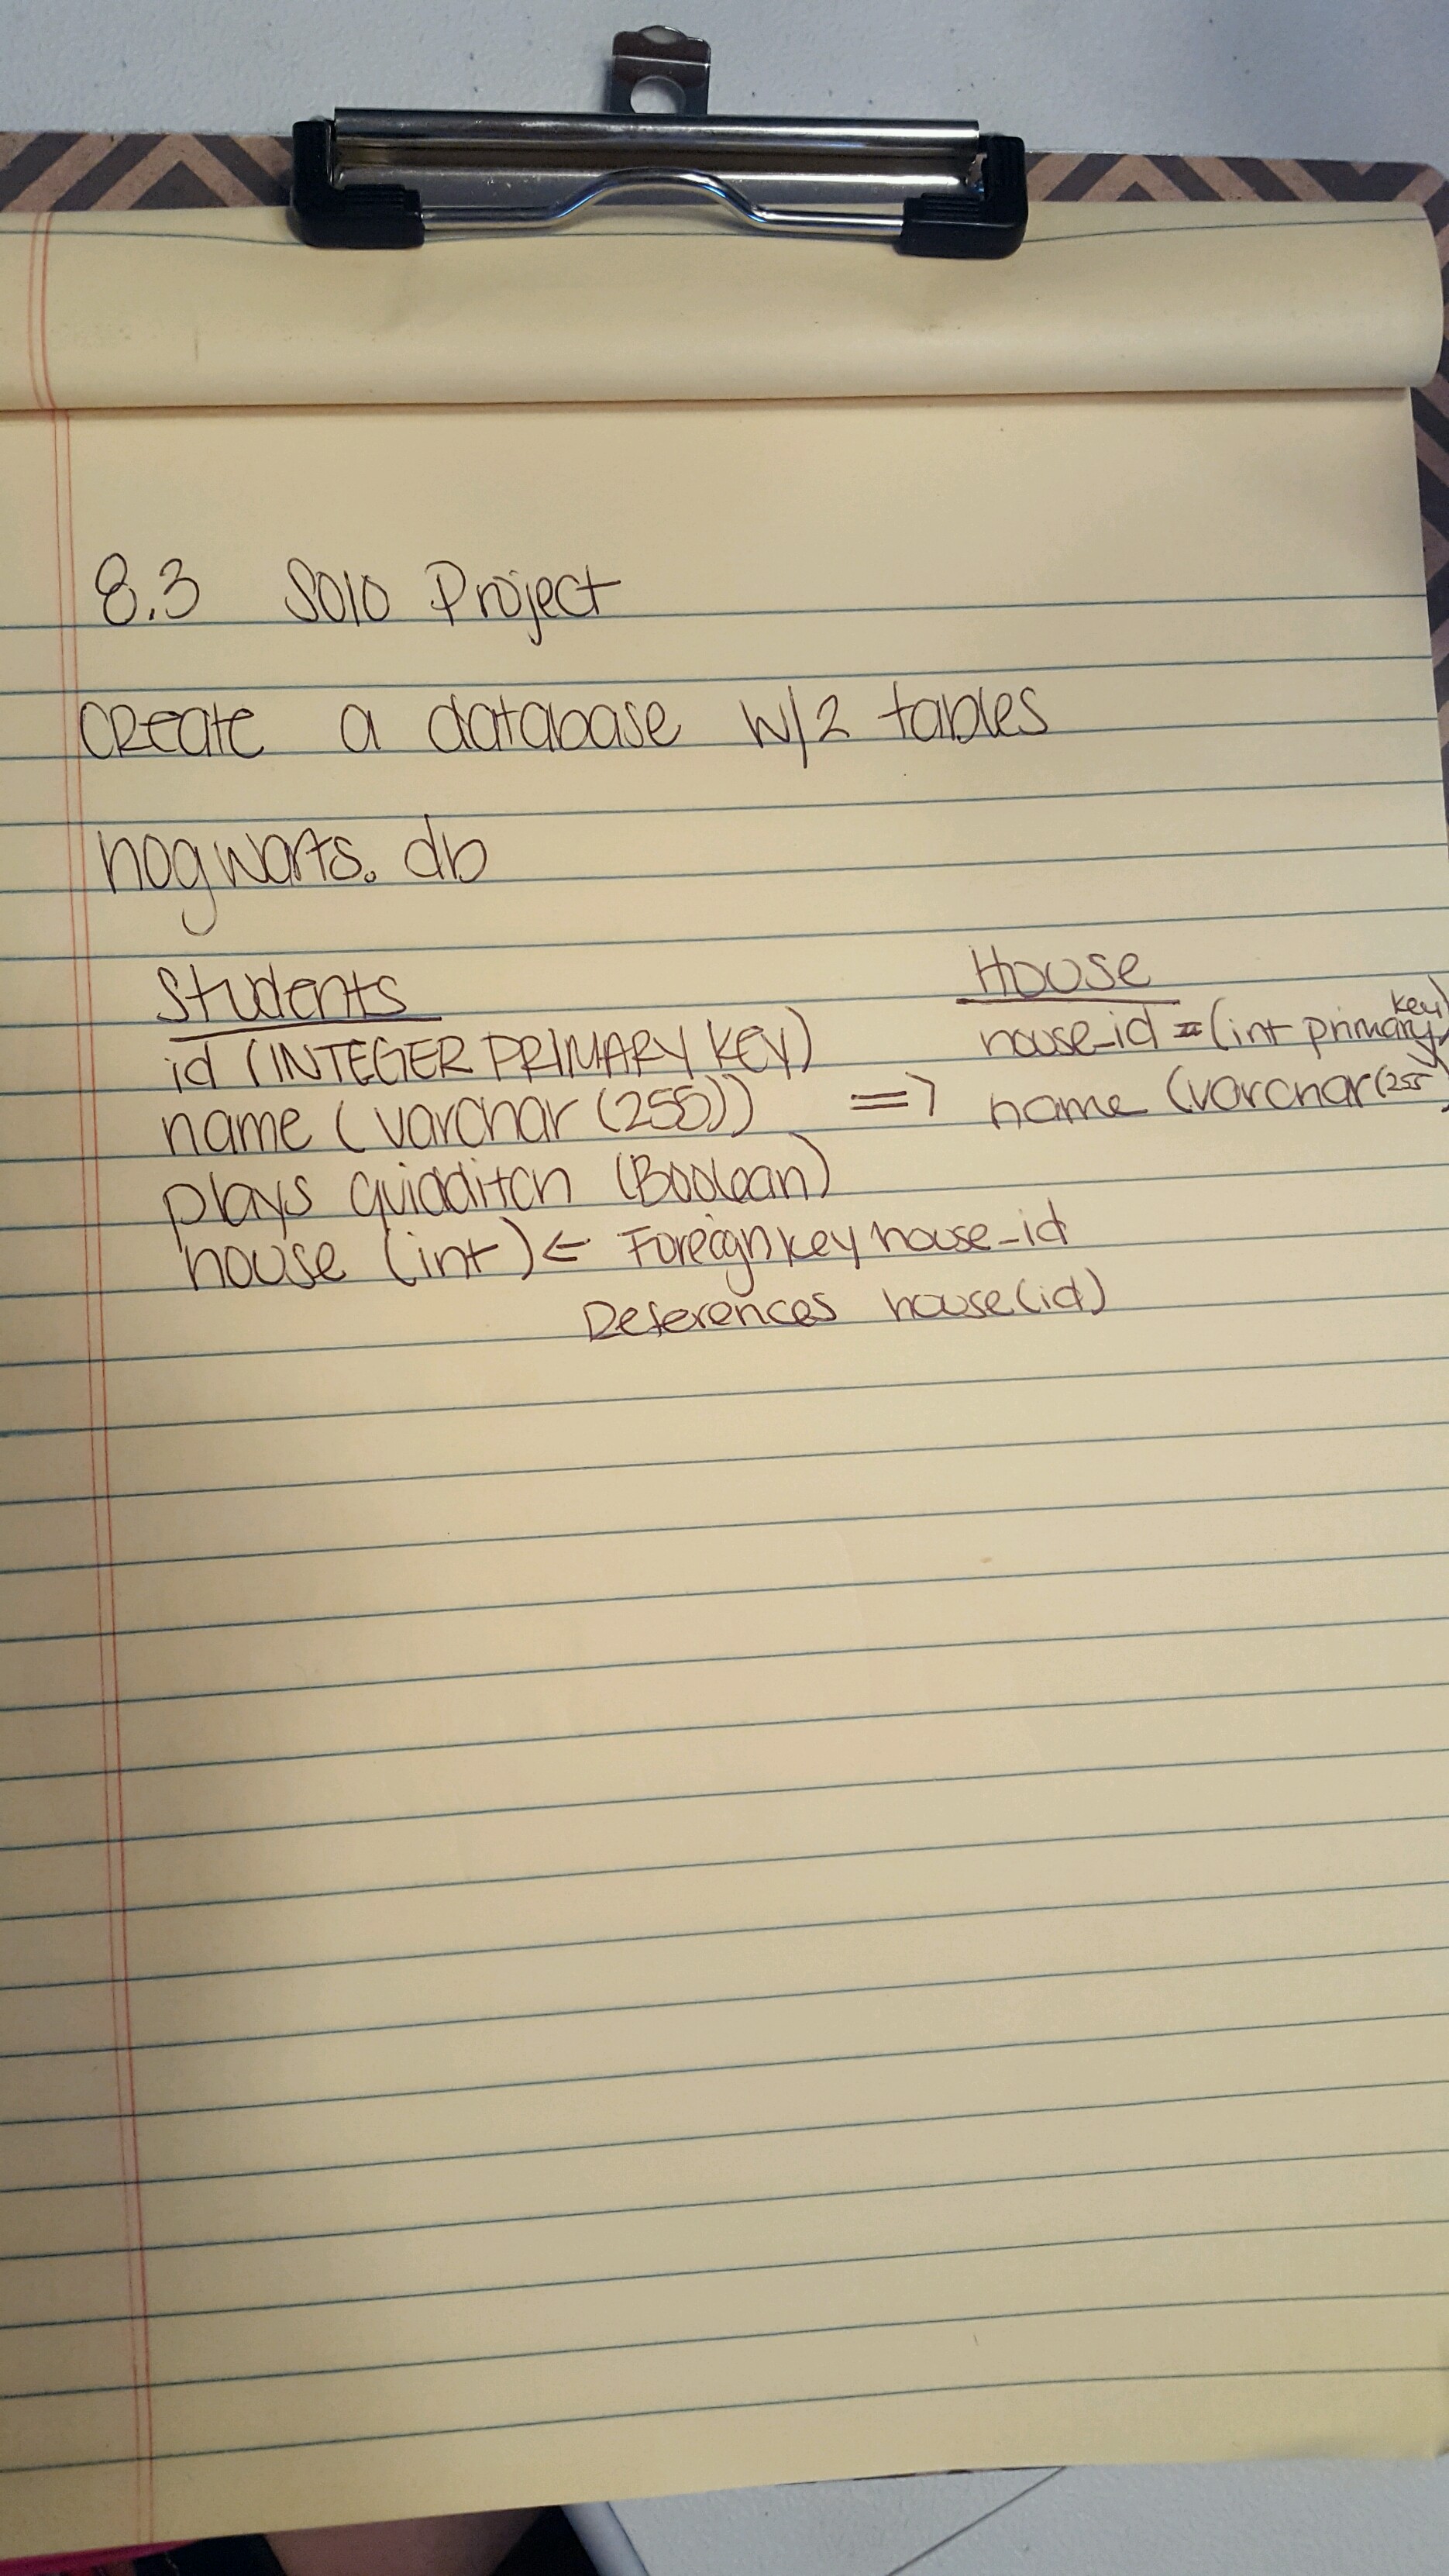 8.3 Solo Project
Create a database w/2 tables
hogwarts.db
Students
id (INTEGER PRIMARY KEY)
name (varchar (255))
plays quidditch (Boolean)
house (int) ← Foreign key house_id
References house(id)
=>
House
house_id = (int primary key)
name (varchar (255)